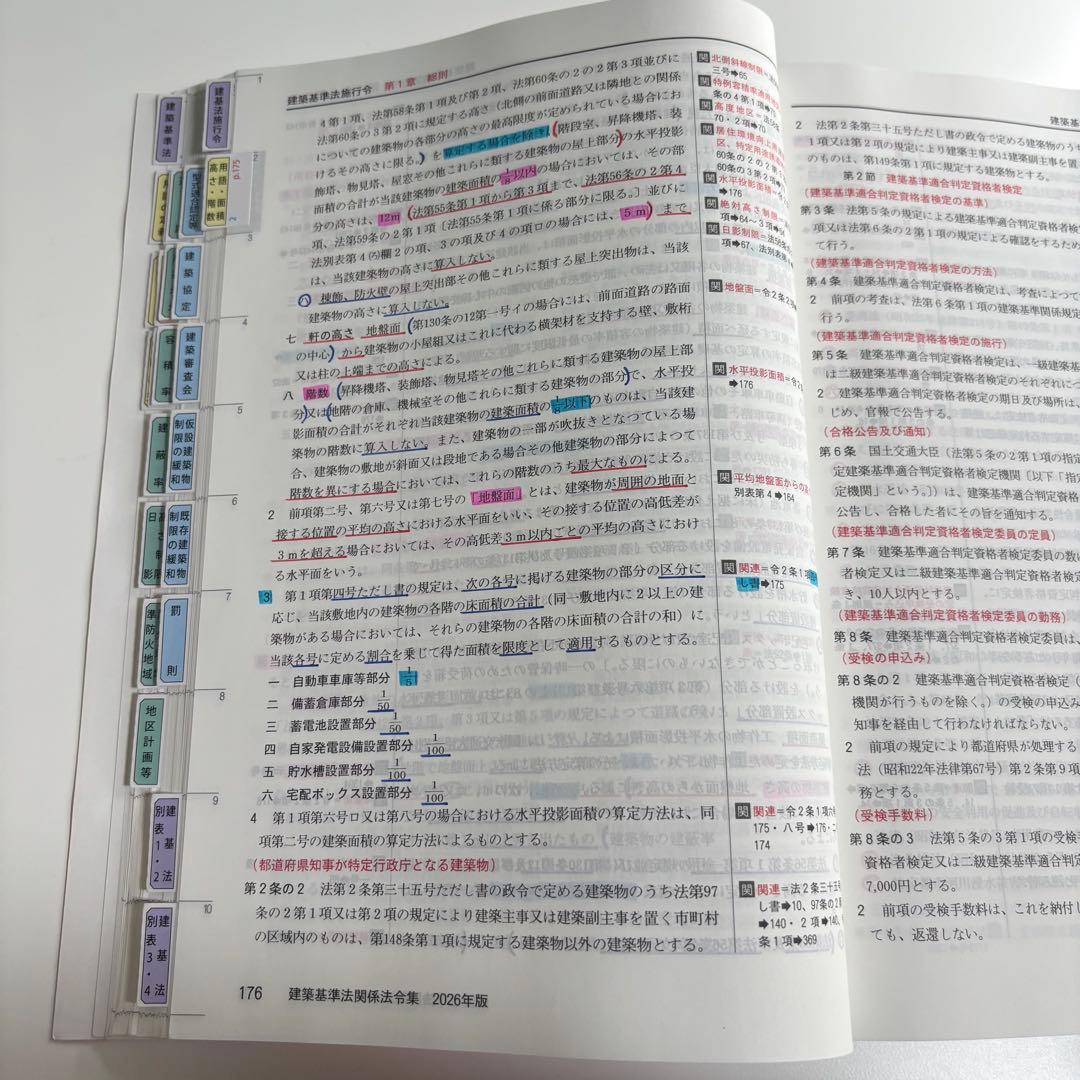 建築基準法施行令 第1章 総則
4第1項、法第58条第1項及び第2項、法第60条の2の2第3項並びに
法第60条の3第2項に規定する高さ(北側の前面道路又は隣地との関係
についての建築物の各部分の高さの最高限度が定められている場合にお
けるその高さに限る。)を算定する場合を除き、(階段室、昇降機塔、装
飾塔、物見塔、屋窓その他これらに類する建築物の屋上部分)の水平投影
面積の合計が当該建築物の建築面積の 以内の場合においては、その部
分の高さは、12m(法第55条第1項から第3項まで、法第56条の2第4
項、法第59条の2第1項〔法第55条第1項に係る部分に限る。〕並びに
法別表第4(ろ)欄2の項、3の項及び4の項ロの場合には、5m)まで
は、当該建築物の高さに算入しない。
ハ 棟飾、防火壁の屋上突出部その他これらに類する屋上突出物は、当該
建築物の高さに算入しない。
七 軒の高さ 地盤面(第130条の12第一号イの場合には、前面道路の路面
の中心)から建築物の小屋組又はこれに代わる横架材を支持する壁、敷桁
又は柱の上端までの高さによる。
八 階数 (昇降機塔、装飾塔、物見塔その他これらに類する建築物の屋上部
分)又は(地階の倉庫、機械室その他これらに類する建築物の部分)で、水平投
影面積の合計がそれぞれ当該建築物の建築面積の 以下のものは、当該建
築物の階数に算入しない。また、建築物の一部が吹抜きとなつている場
合、建築物の敷地が斜面又は段地である場合その他建築物の部分によつて
階数を異にする場合においては、これらの階数のうち最大なものによる。
2 前項第二号、第六号又は第七号の「地盤面」とは、建築物が周囲の地面と
接する位置の平均の高さにおける水平面をいい、その接する位置の高低差が
3mを超える場合においては、その高低差3m以内ごとの平均の高さにおけ
る水平面をいう。
3 第1項第四号ただし書の規定は、次の各号に掲げる建築物の部分の区分に
応じ、当該敷地内の建築物の各階の床面積の合計(同一敷地内に2以上の建
築物がある場合においては、それらの建築物の各階の床面積の合計の和)に
当該各号に定める割合を乗じて得た面積を限度として適用するものとする。
一 自動車車庫等部分 1/5
二 備蓄倉庫部分 1/50
三 蓄電池設置部分 1/50
四 自家発電設備設置部分 1/100
五 貯水槽設置部分 1/100
六 宅配ボックス設置部分 1/100
4 第1項第六号ロ又は第八号の場合における水平投影面積の算定方法は、同
項第二号の建築面積の算定方法によるものとする。
(都道府県知事が特定行政庁となる建築物)
第2条の2 法第2条第三十五号ただし書の政令で定める建築物のうち法第97
条の2第1項又は第2項の規定により建築主事又は建築副主事を置く市町村
の区域内のものは、第148条第1項に規定する建築物以外の建築物とする。
176 建築基準法関係法令集 2026年版
関 北側斜線制限=
三号➡65
関 特例容積率適用
条の4第1項➡
関 高度地区=法58
70・2項➡70
関 居住環境向上用
区、特定用途
60条の2の2
60条の3第2項
関 水平投影面積=
➡176
関 絶対高さ制限
➡64〜3項➡
関 日影制限=法56条
項➡67、法別表第
関 地盤面=令2条2
関 水平投影面積=令2
➡176
関 平均地盤面からの高
別表第4➡164
関 関連=令2条1項
し書➡175
関 関連=令2条1項六
175・八号➡176・
174
関 関連=法2条三十五号
し書➡10、97条の2
➡140・2項➡140、
条1項➡369
建築基準法
建基法施行令
用語・面積
高さ・階数
p.175
型式適合認定等
建築協定
建築審査会
容積率
仮設建築物
制限の緩和
建蔽率
既存建築物
制限の緩和
高さ制限
日影
罰則
準防火地域
地区計画等
建基法
別表1・2
建基法
別表3・4
1
2
3
4
5
6
7
8
9
10
建築基
2 法第2条第三十五号ただし書の政令で定める建築物のうち
1項又は第2項の規定により建築主事又は建築副主事を置
のものは、第149条第1項に規定する建築物とする。
第2節 建築基準適合判定資格者検定
(建築基準適合判定資格者検定の基準)
第3条 法第5条の規定による建築基準適合判定資格者検定
項又は法第6条の2第1項の規定による確認をするため
て行う。
(建築基準適合判定資格者検定の方法)
第4条 建築基準適合判定資格者検定は、考査によつて
2 前項の考査は、法第6条第1項の建築基準関係規定
行う。
(建築基準適合判定資格者検定の施行)
第5条 建築基準適合判定資格者検定は、一級建築基
は二級建築基準適合判定資格者検定のそれぞれにつ
2 建築基準適合判定資格者検定の期日及び場所は、
じめ、官報で公告する。
(合格公告及び通知)
第6条 国土交通大臣(法第5条の2第1項の指定
定建築基準適合判定資格者検定機関〔以下「指定
定機関」という。〕)は、建築基準適合判定資格
公告し、合格した者にその旨を通知する。
(建築基準適合判定資格者検定委員の定員)
第7条 建築基準適合判定資格者検定委員の数
者検定又は二級建築基準適合判定資格者検定
き、10人以内とする。
(建築基準適合判定資格者検定委員の勤務)
第8条 建築基準適合判定資格者検定委員は、
(受検の申込み)
第8条の2 建築基準適合判定資格者検定(
機関が行うものを除く。)の受検の申込み
知事を経由して行わなければならない。
2 前項の規定により都道府県が処理する
法(昭和22年法律第67号)第2条第9項
務とする。
(受検手数料)
第8条の3 法第5条の3第1項の受検
資格者検定又は二級建築基準適合判定
7,000円とする。
2 前項の受検手数料は、これを納付し
ても、返還しない。